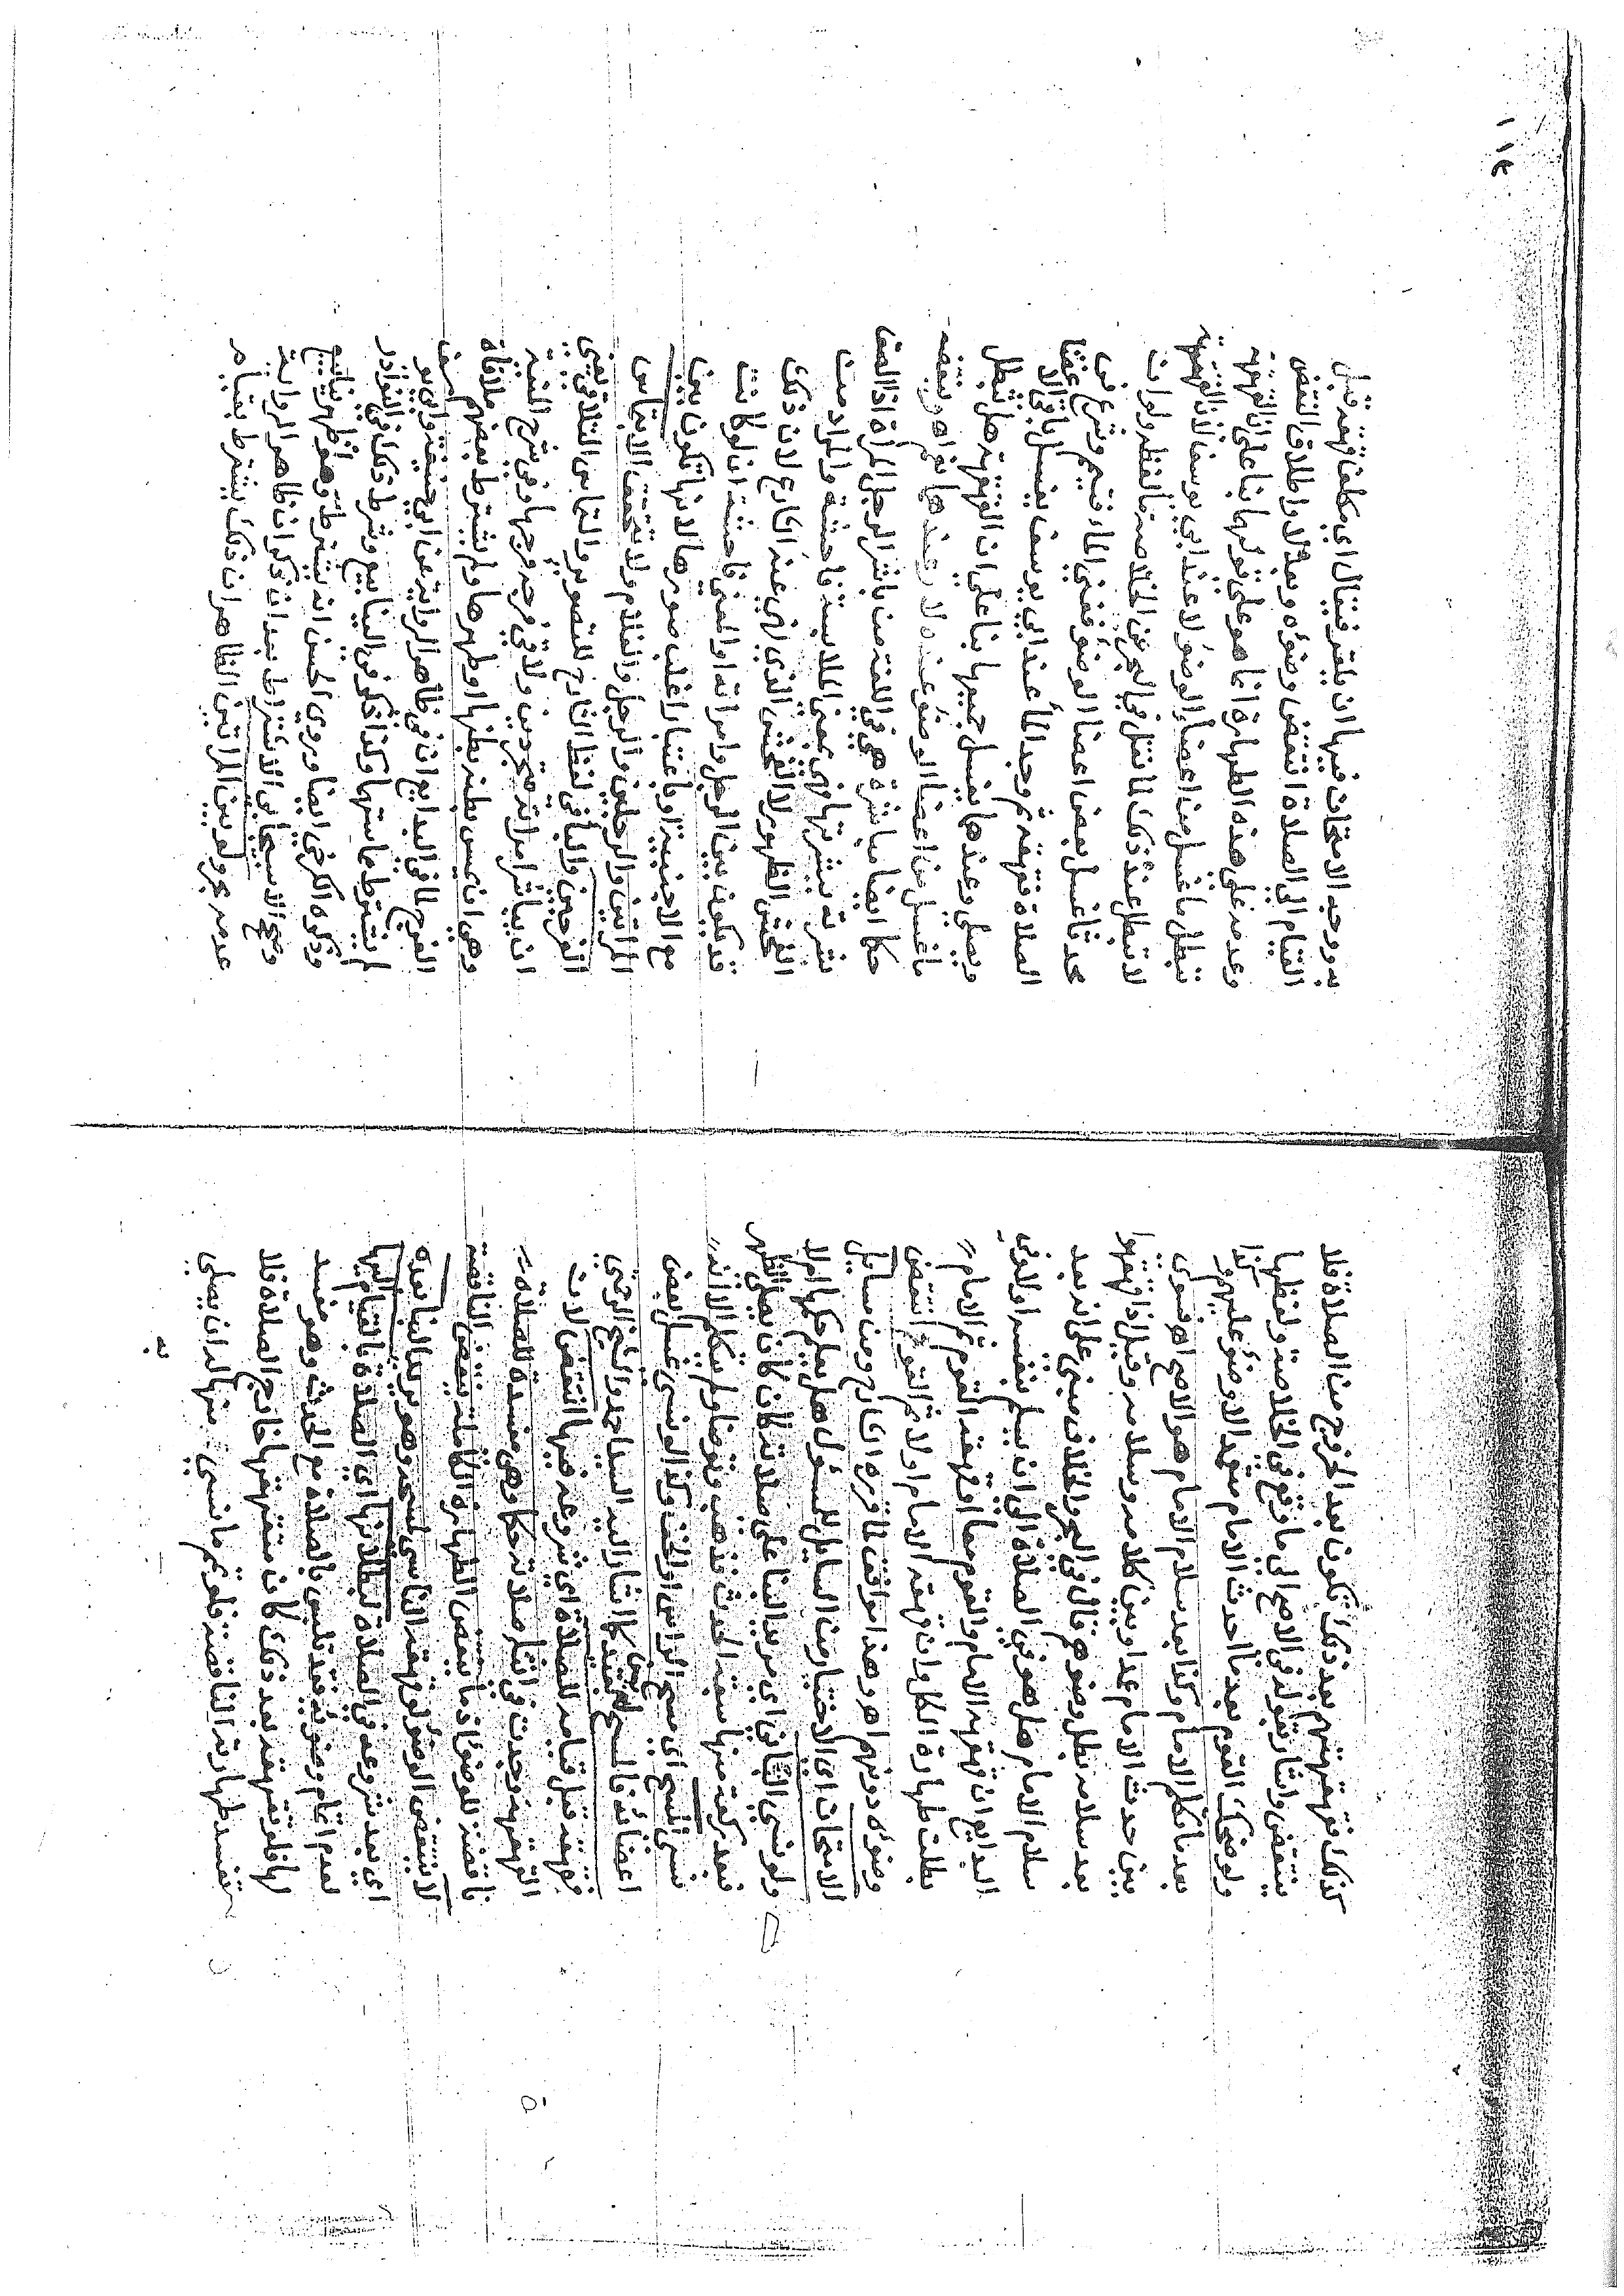 ١١٤
كذلك فقهقهتهم بعد ذلك تكون بعد الخروج من الصلاة فلا
ينتقض واشار بقوله في الاصح الى ما وقع في الخلاصة ولفظها
ولو ضحك القوم بعد ما احدث الامام متعمدا لا وضوء عليهم وكذا
بعد ما تكلم الامام وكذا بعد سلام الامام هو الاصح اهـ فسوى
بين حدث الامام عمدا وبين كلامه وسلامه وقيل اذا قهقهوا
بعد سلامه بطل وضوءهم قال في البحر والخلاف مبني على انه بعد
سلام الامام هل هو في الصلاة الى ان يسلم بنفسه او لا وفي
البدايع ان قهقه الامام والقوم معا او قهقه القوم ثم الامام
بطلت طهارة الكل وان قهقه الامام اولا ثم القوم انتقض
وضوءه دونهم اهـ وهذا موافق لما قرره الشارح ومن مسايل
الامتحان اي الاختبار من السايل للمسئول هل يعلم حكمها او لا
ولو نسي الباني اي مريد البنا على صلاته كان يصلي الظهر
فبعد ركعة منها سبقه الحدث فذهب وتوضا ولم يتكلم الا انه
نسي المسح اي مسح الراس او الخف وكذا لو نسي غسل بعض
اعضائه فالمسح ليس بقيد كما اشار اليه السيد احمد والشيخ الرحمتي
فقهقه قبل قيامه للصلاة اي شروعه فيها انتقض لان
القهقهة وجدت في اثناء صلاته حكما وهي مفسدة للصلاة
ناقضة للوضوء اذ ما ينقض الطهارة الكاملة ينقض الناقصة
لا ينتقض الوضوء لو قهقه الناسي لمسحه وهو يريد البنا بعده
اي بعد شروعه في الصلاة لبطلانها اي الصلاة بالقيام اليها
لعدم اتمام وضوئه فقد تلبس بالصلاة مع الحدث وهو مفسد
لها فلو تقهقه بعد ذلك كان متقهقها خارج الصلاة فلا
تفسد طهارته الناقصة فلو تمم ما نسي منها له ان يصلي
به
به ووجه الامتحان فيها ان يلغز فيقال اي مكلف قهقه قبل
القيام الى الصلاة انتقض وضوءه وبعده لا واطلاق النقض
وعدمه على هذه الطهارة انما هو على قولهما بنا على ان القهقهة
تبطل ما غسل من اعضاء الوضوء لا عند ابي يوسف لان القهقهة
لا تبطل عنده ذلك لما نقل في البحر عن الخلاصة ما لفظه ولو ان
محدثا غسل بعض اعضاء الوضوء ففني الماء فتيمم وشرع في
الصلاة فقهقه ثم وجد الماء عند ابي يوسف يغسل باقي الاعضا
ويصلي وعندهما يغسل جميعها بنا على ان القهقهة هل تبطل
ما غسل من اعضاء الوضوء عنده لا وعندهما نعم اهـ وينقضه
حكما ايضا مباشرة هي في اللغة من باشر الرجل المراة اذا الصق
بشرته ببشرتها وهي بمعنى الملامسة فاحشة والمراد من
الفحش الظهور لا الفحش الذي نهى عنه الشارع لان ذلك
قد يكون بين الرجل وامراته او المعنى فاحشة ان لو كانت
مع الاجنبية او باعتبار اغلب صورها لانها تكون بين
المراتين والرجلين والرجل والغلام ولا تحقق الا بتماس
الفرجين والباقي لفظ الشارح للتصوير والتماس التلاقي يعني
ان يباشر امراته متجردين ولاقى فرجه فرجها وفي شرح المنية
وهي ان يمس بطنه بطنها او ظهرها ولم يشترط بعضهم ملاقاة
الفرج لما في البدايع انه في ظاهر الرواية عن ابي حنيفة وابي يوسف
لم يشترط مماستهما وكذا ذكر في الينابيع وشرط ذلك في النوادر
وذكره الكرخي ايضا وروي الحسن انه يشترط وهو اظهر
وصحح الاسبيجابي الاشتراط بعد ان ذكر ان ظاهر الرواية
عدمه بحر ولو بين المراتين الظاهر ان ذلك يشترط بقيام